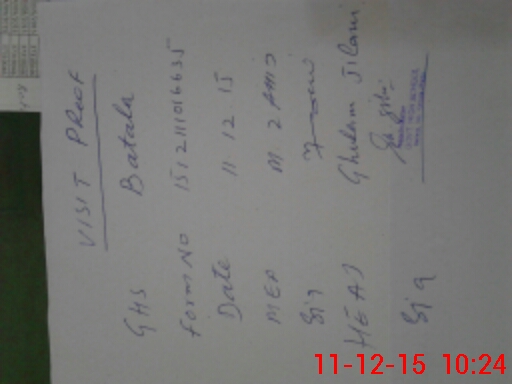 VISIT PROOF
GHS Batala
Form No 151211016635
Date 11.12.15
MEA M. ZAMID
Sig
HEAD Ghulam Jilani
Sig
11-12-15 10:24